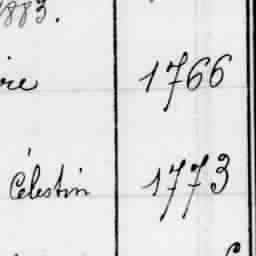 1883.
1766
Célestin 1773